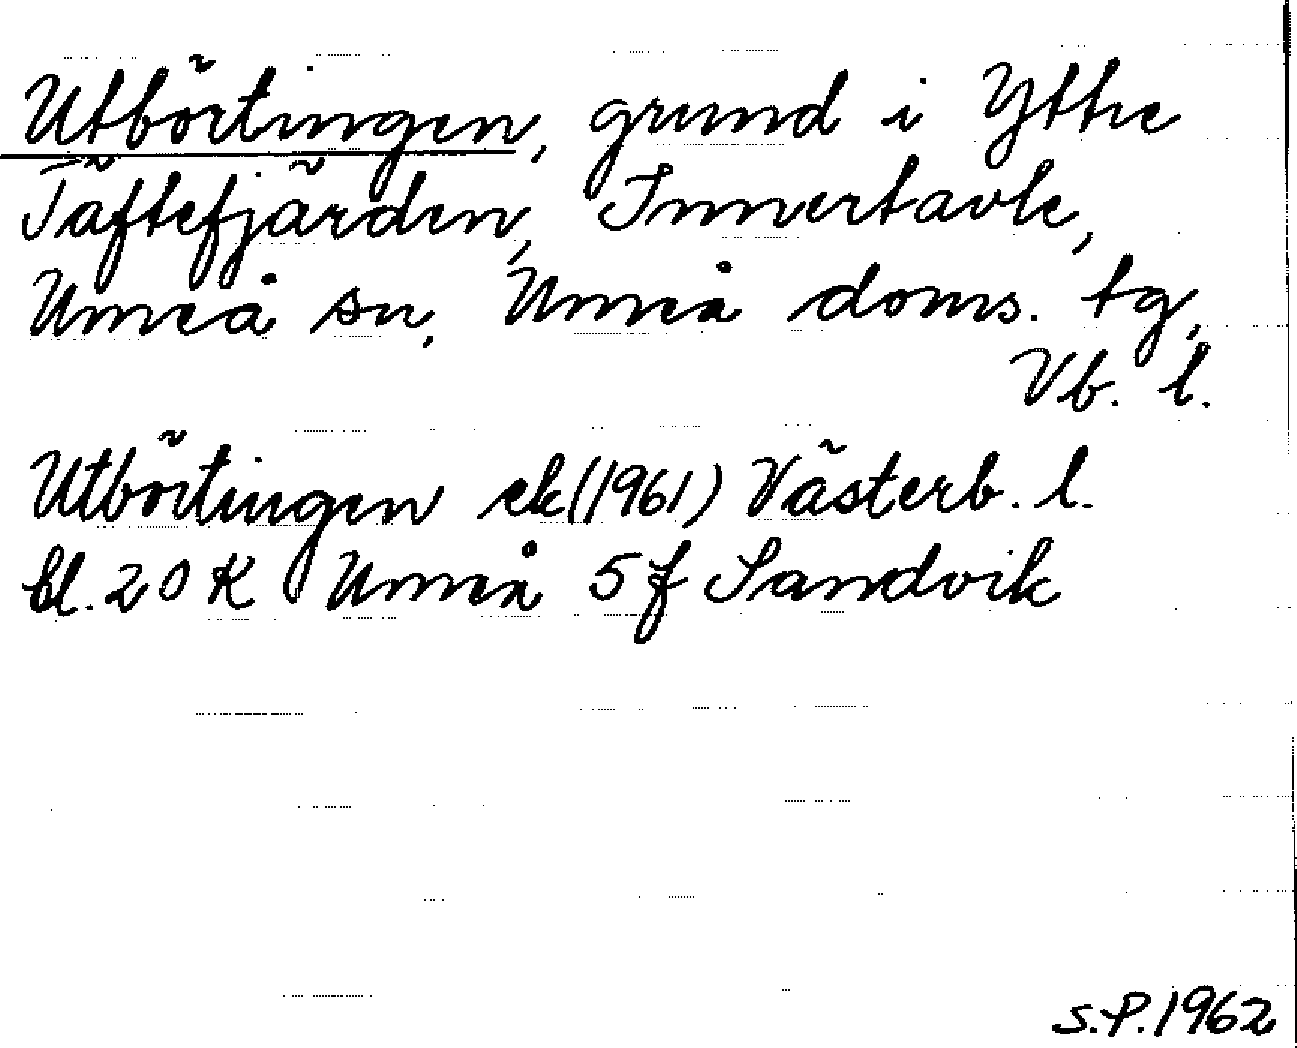 Utbörtingen, grund i Yttre
Täftefjärden, Innertavle,
Umeå sn, Umeå doms. tg,
Vb. l.
Utbörtingen ek (1961) Västerb. l.
bl. 20 K Umeå 5 f Sandvik
S.P. 1962